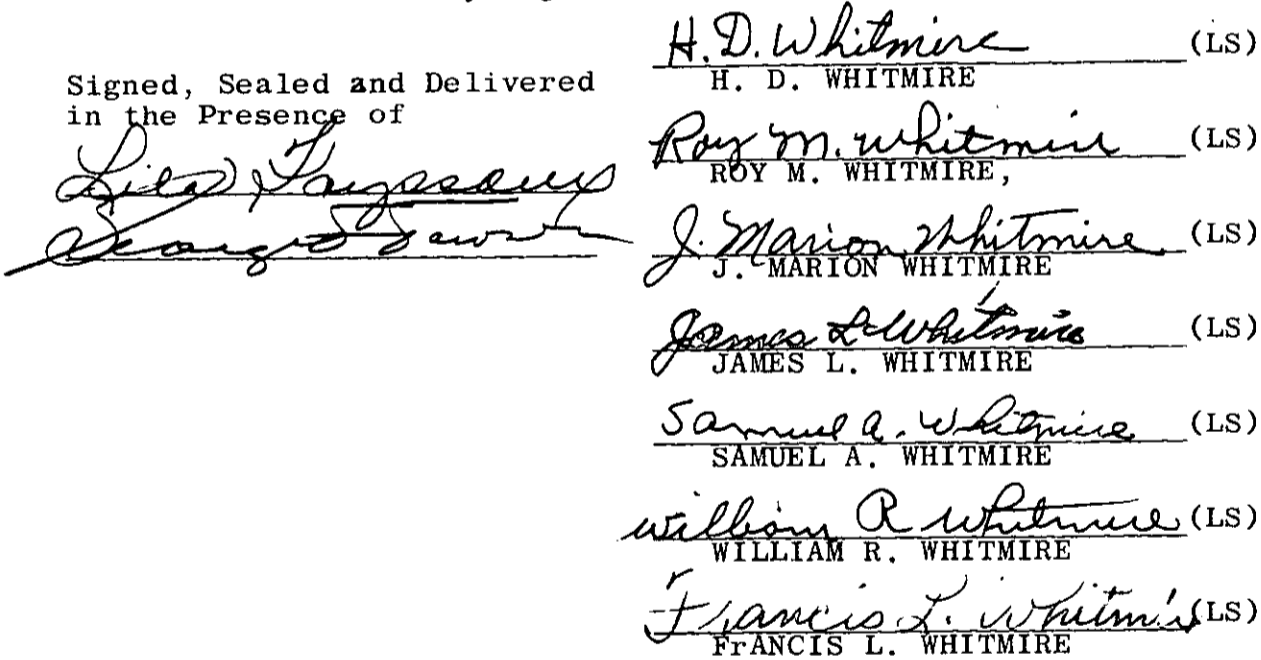 Signed, Sealed and Delivered
in the Presence of
H. D. Whitmire (LS)
H. D. WHITMIRE
Roy M. Whitmire (LS)
ROY M. WHITMIRE,
J. Marion Whitmire (LS)
J. MARION WHITMIRE
James L Whitmire (LS)
JAMES L. WHITMIRE
Samuel A. Whitmire (LS)
SAMUEL A. WHITMIRE
William R Whitmire (LS)
WILLIAM R. WHITMIRE
Francis L. Whitmire (LS)
FrANCIS L. WHITMIRE